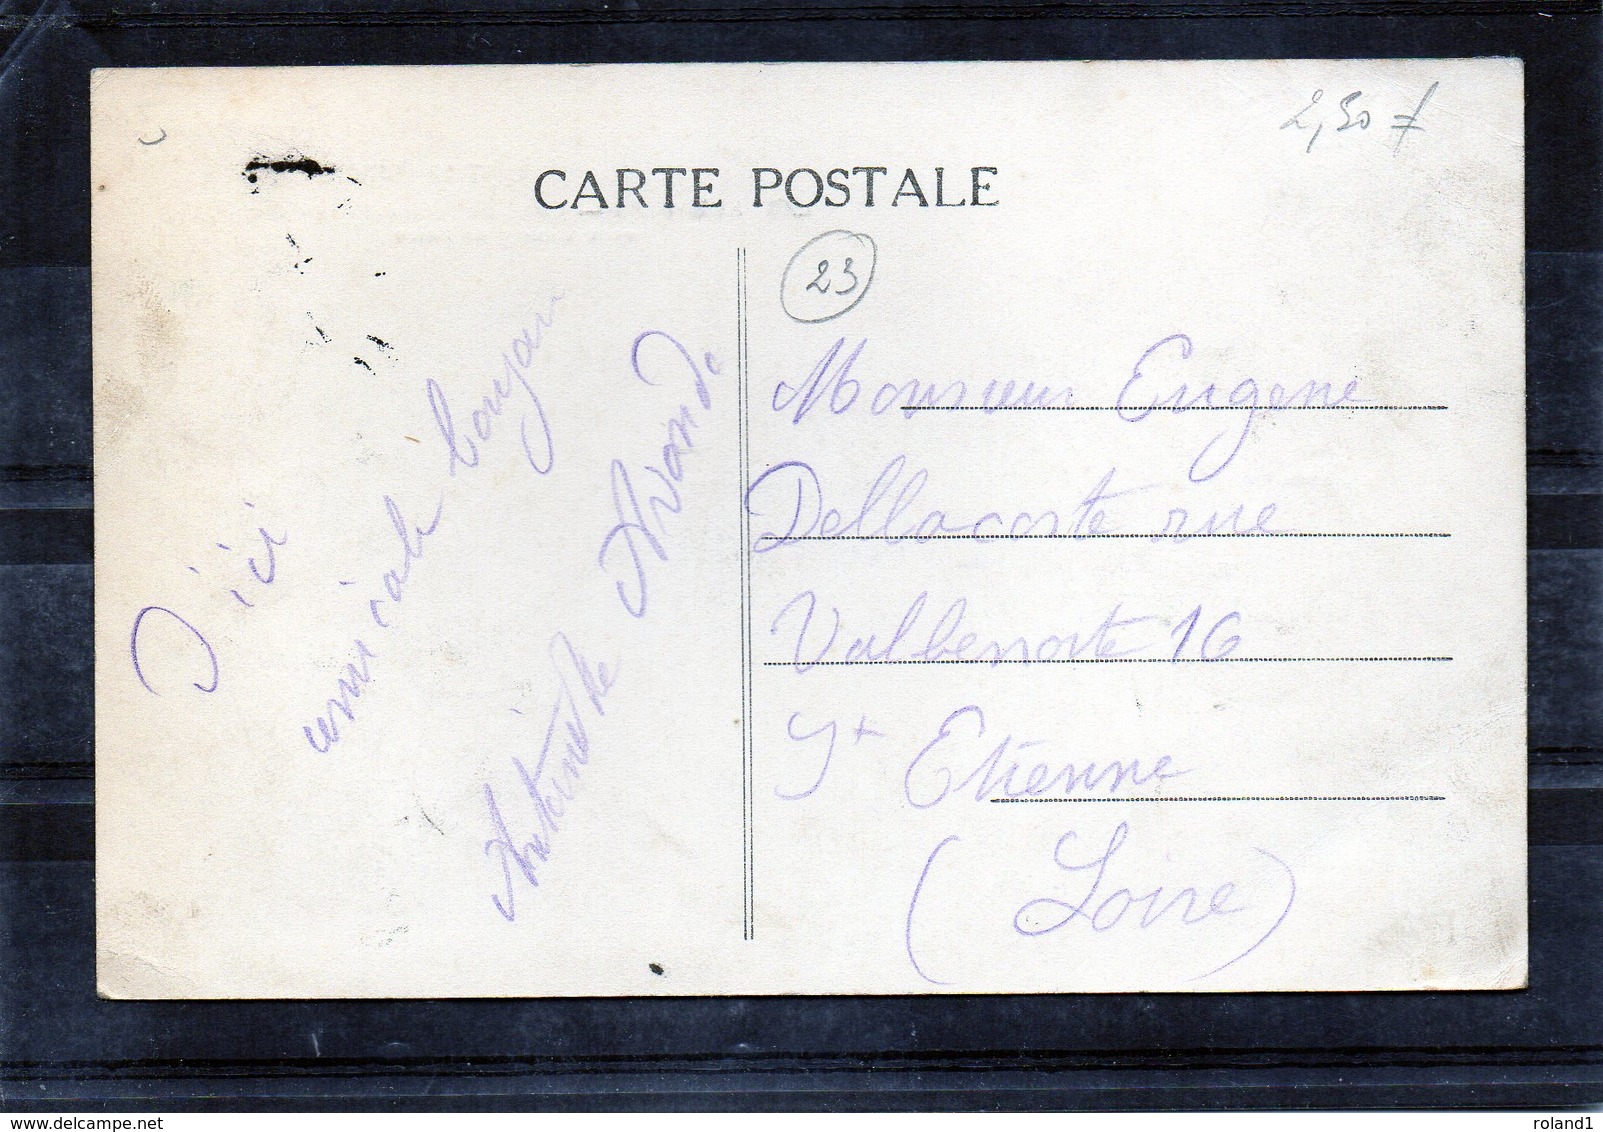 2,50 f
CARTE POSTALE
23
D'ici
amicale bonjour
Antoinette
Monsieur Eugene
Dellacoste rue
Valbenoite 16
St Etienne
(Loire)
www.delcampe.net
roland1